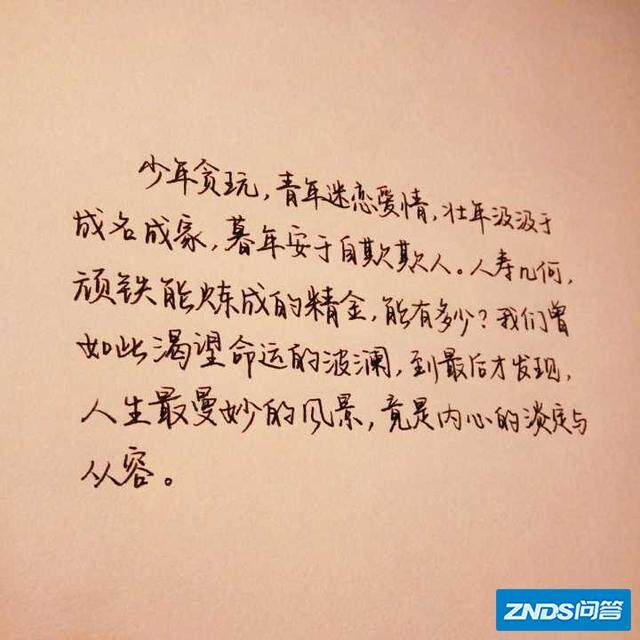 少年贪玩，青年迷恋爱情，壮年汲汲于
成名成家，暮年安于自欺欺人。人寿几何，
顽铁能炼成的精金，能有多少？我们曾
如此渴望命运的波澜，到最后才发现，
人生最曼妙的风景，竟是内心的淡定与
从容。
ZNDS问答